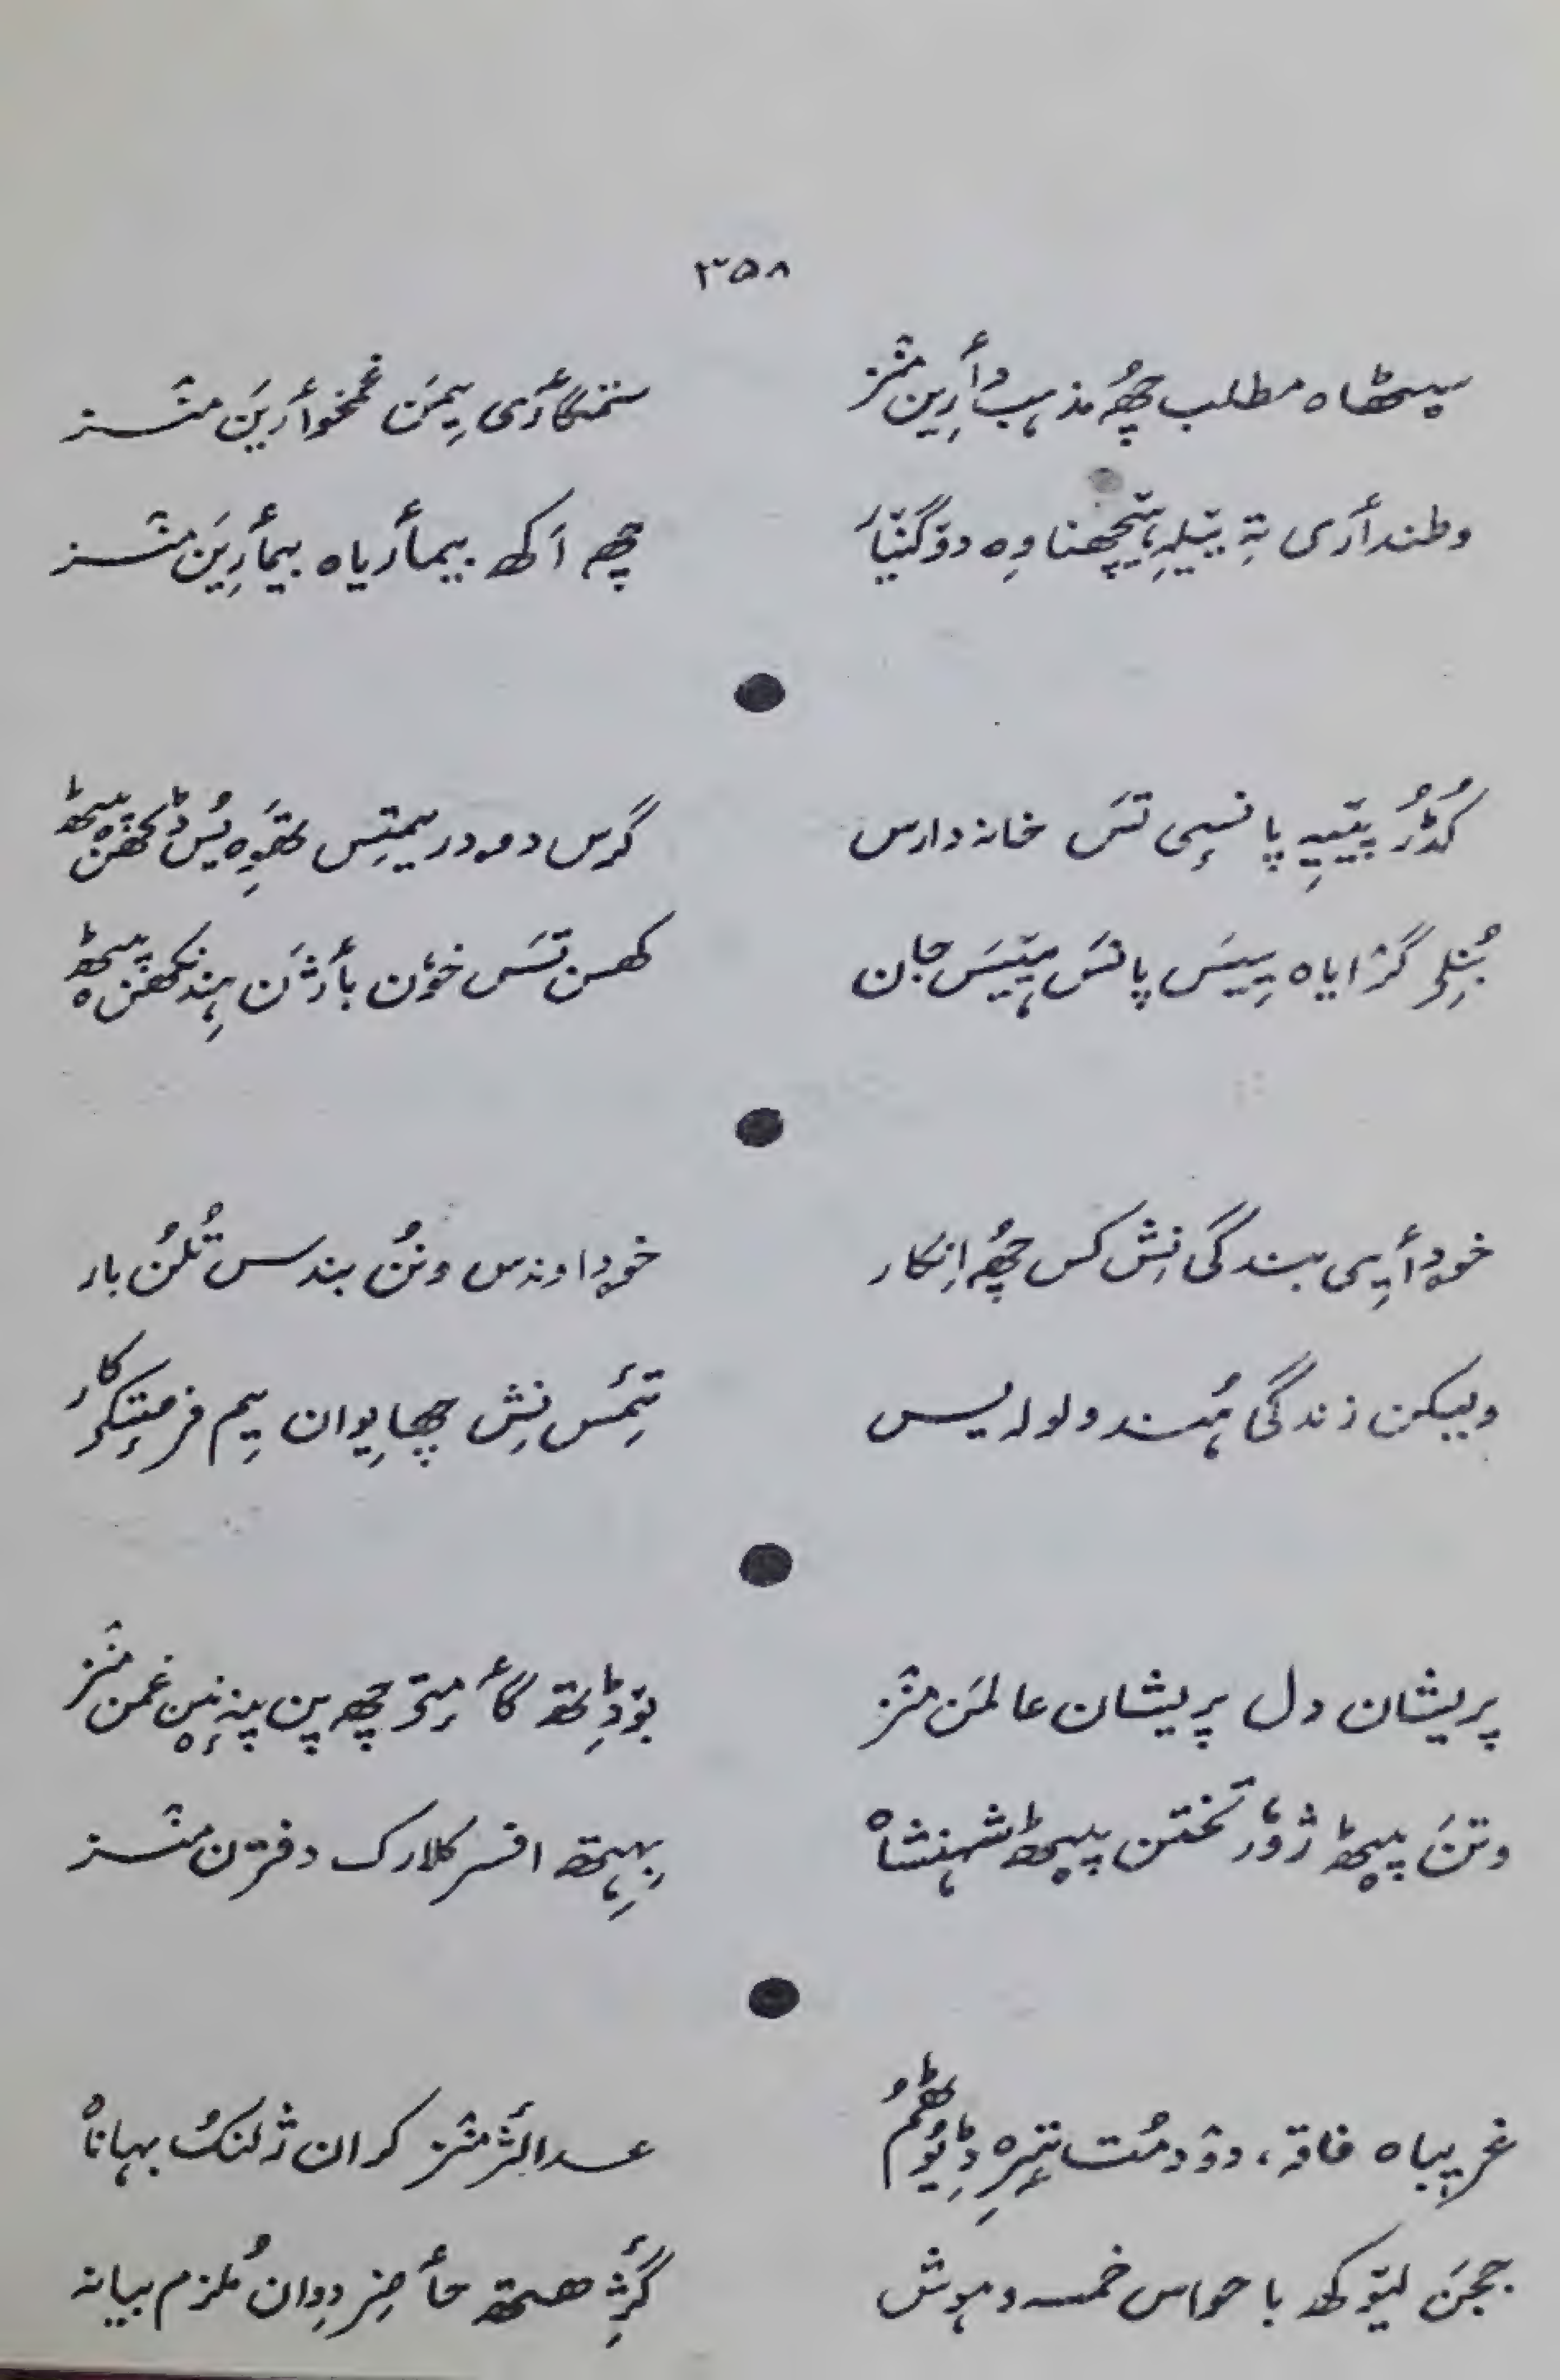 ۳۵۸
سیٹھاہ مطلب چھُ مذہب دأرِین منٛز ستمگأری یِمَن غمخوأرِیَن منٛز
وطندأری تہٕ بیٚلہِ یِتیٚچھنا وِہ دوٚگنیٚار چھِ اَکھ بیمأریاہ بیمأرِیَن منٛز
کُڈُر پیٚیہِ پانسٕی تَس خانہ دارس گرس دمہ در یمیتِس
گرٛایاہ پیٚیَس پانَس ہیٚتیَس جان کھسن تَس خوٗن بأژَن ہِنٛد
خۄدأیی بندگی نِش کس چھُ اِنکار خۄداوندس ونُن بندس تُلُن بار
ولیکن زندگی ہُند ولولہ یس تِمَس نِش چھا یِوان یِم فرمتٕکۍ کار
پریشان دل پریشان عالمَن منٛز بوٚڈِتھ گأمِتۍ چھِ پن پنہٕ نیٚن غمن منٛز
وتَن پیٚٹھ ژوٗر تختن پیٚٹھ شہنشاہ بِہِتھ افسر کلارک دفترن منٛز
غریباہ فاقہٕ، دوٚدمُت تیٖرِہ ڈیوٗٹھُم عدالژ منٛز کران ژلنکُ بہاناہ
ججَن لیوٗکھ با حواس خمسہ و ہوش گژِھ ھیتھ حأضِر دِوان مُلزم بیانہ